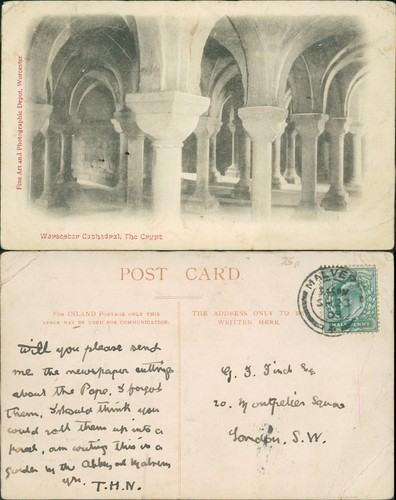 Fine Art and Photographic Depot, Worcester
Worcester Cathedral, The Crypt
25p
POST CARD
For INLAND Postage only this
space may be used for communication.
THE ADDRESS ONLY TO BE
WRITTEN HERE.
MALVERN
HALFPENNY
Will you please send
me the newspaper cutting
about the Pope, I forgot
them, I should think you
could roll them up into a
parcel, am writing this in a
garden by the Abbey at Malvern
yrs. T.H.N.
G. F. Finch Esq
20. Montpelier Square
London, S.W.